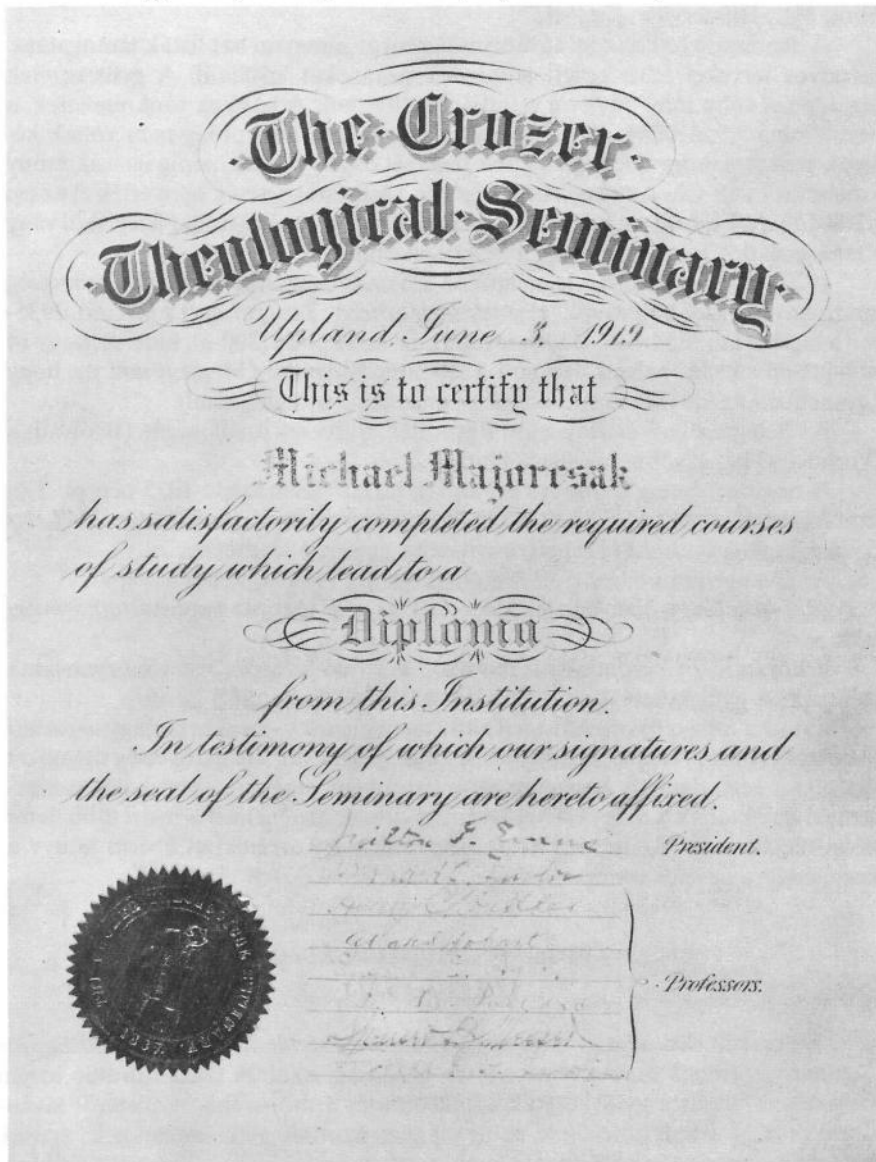 The Crozer
Theological Seminary
Upland, June 3, 1919
This is to certify that
Michael Majorcsak
has satisfactorily completed the required courses
of study which lead to a
Diploma
from this Institution.
In testimony of which our signatures and
the seal of the Seminary are hereto affixed.
Milton F. Evans President.
Professors.